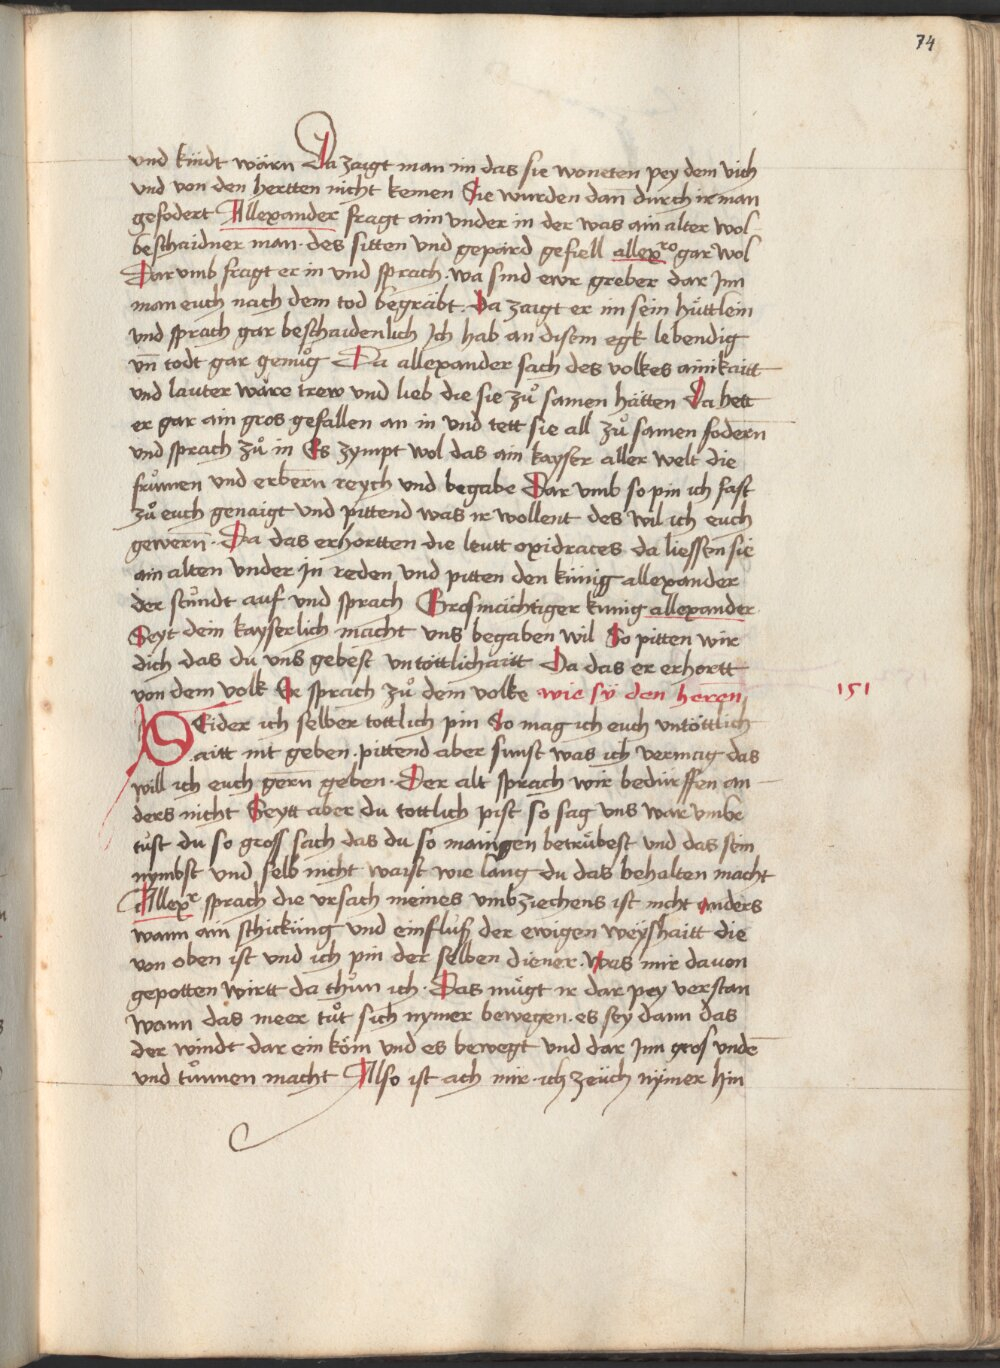 74
und kindt wärn Da zaigt man im das sie woneten pey dem vich
und von den hertten nicht kemen Sie wurden dan̄ durch ir man
gefodert Allexander fragt ain under in der was ain alter wol
beschaidner man · des sitten und gepärd gefiell allexʳᵒ gar wol
Dar umb fragt er in und sprach · wa sind ewr greber dar Inn
man euch nach dem tod begräbt · Da zaigt er im sein hüttlein
und sprach gar beschaidenlich Ich hab an disem egk lebendig
vn̄ todt gar genůg Da allexander sach des volkes ainikaitt
und lauter wäre trew und lieb die sie zů samen hätten Da hett
er gar ain gros gefallen an in und tett sie all zů samen fodern
und sprach zů in Es zympt wol das ain kayser aller welt die
frůmen und erbern reych und begabe Dar umb so pin ich fast
zů euch genaigt und pittend was ir wollent des wil ich euch
gewern̄ · Da das erhortten die leutt oxidraces da liessen sie
ain alten under In reden und pitten den künig allexander
der stůndt auf und sprach Grosmächtiger kunig allexander
Seyt dein kayserlich macht uns begaben wil So pitten wir
dich das du uns gebest untöttlichaitt Da das er erhortt
von dem volk Er sprach zů dem volke wie sy den heren
151
SEider ich selber tottlich pin So mag ich euch untöttlich
aitt nit geben · pittend aber sunst was ich vermag das
will ich euch gern geben · Der alt sprach wir bedürffen an
ders nicht Seytt aber du tottlich pist so sag uns war umbe
tůst du so gross sach das du so maingen betrübest und das sein
nymbst und selb nicht waist wie lang du das behalten macht
Allexʳ sprach die ursach meines umbziechens ist nicht anders
wann ain schickung und einfluß der ewigen weyshaitt die
von oben ist und ich pin der selben diener · Was mir davon
gepotten wirtt da thůn ich · Das mügt ir dar pey verstan
wann das meer tůt sich nymer bewegen · es sey dann das
der windt dar ein köm und es bewegt und dar Inn gros unde
und tůnnen macht Also ist ach mir · ich zeüch nymer hin